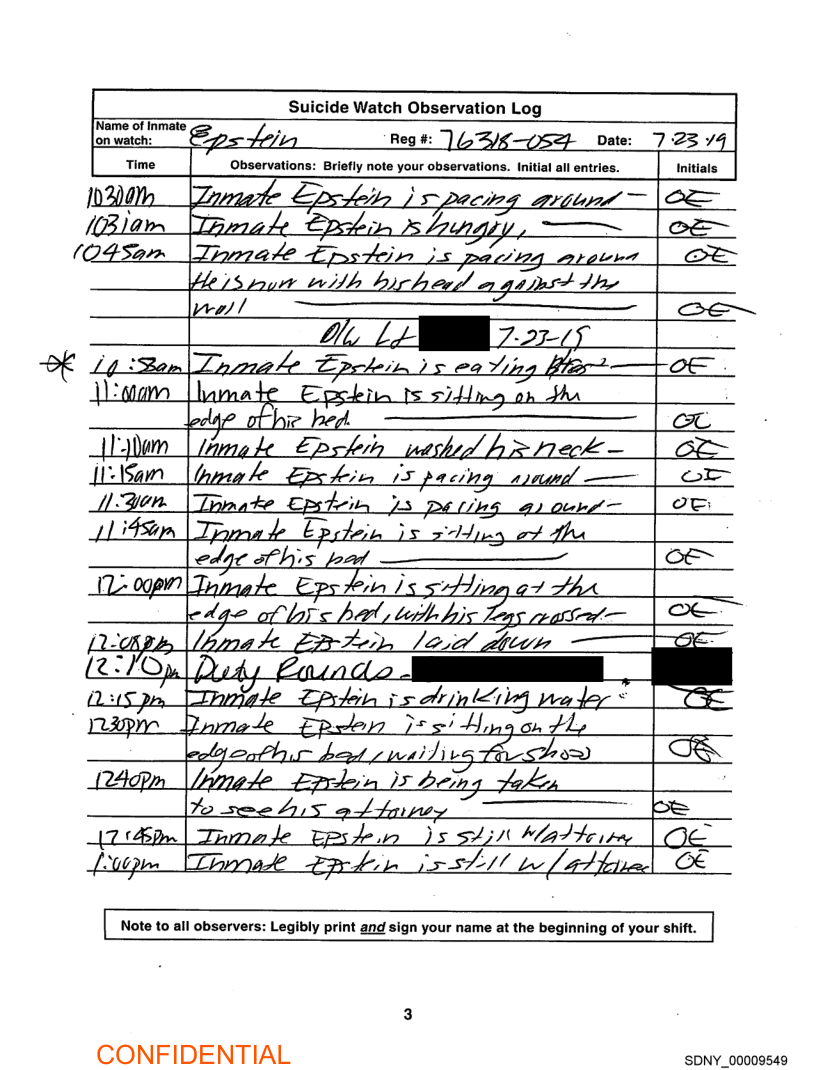 Suicide Watch Observation Log
Name of Inmate on watch: Epstein Reg #: 76318-054 Date: 7-23-19
Time Observations: Briefly note your observations. Initial all entries. Initials
1030am Inmate Epstein is pacing around – OE
1031am Inmate Epstein is hungry, OE
1045am Inmate Epstein is pacing around OE
He is now with his head against the
wall OE
Lt 7-23-19
10:58am Inmate Epstein is eating OE
11:00am Inmate Epstein is sitting on the
edge of his bed. OE
11:10am Inmate Epstein washed his neck – OE
11:15am Inmate Epstein is pacing around OE
11:30am Inmate Epstein is pacing around – OE
11:45am Inmate Epstein is sitting at the
edge of his bed OE
12:00pm Inmate Epstein is sitting at the
edge of his bed, with his legs crossed – OE
12:08pm Inmate Epstein laid down OE
12:10pm Duty Rounds –
12:15pm Inmate Epstein is drinking water OE
1230pm Inmate Epstein is sitting on the
edge of his bed, waiting for OE
1240pm Inmate Epstein is being taken
to see his attorney OE
12:45pm Inmate Epstein is still w/attorney OE
1:00pm Inmate Epstein is still w/attorney OE
Note to all observers: Legibly print and sign your name at the beginning of your shift.
3
CONFIDENTIAL
SDNY_00009549